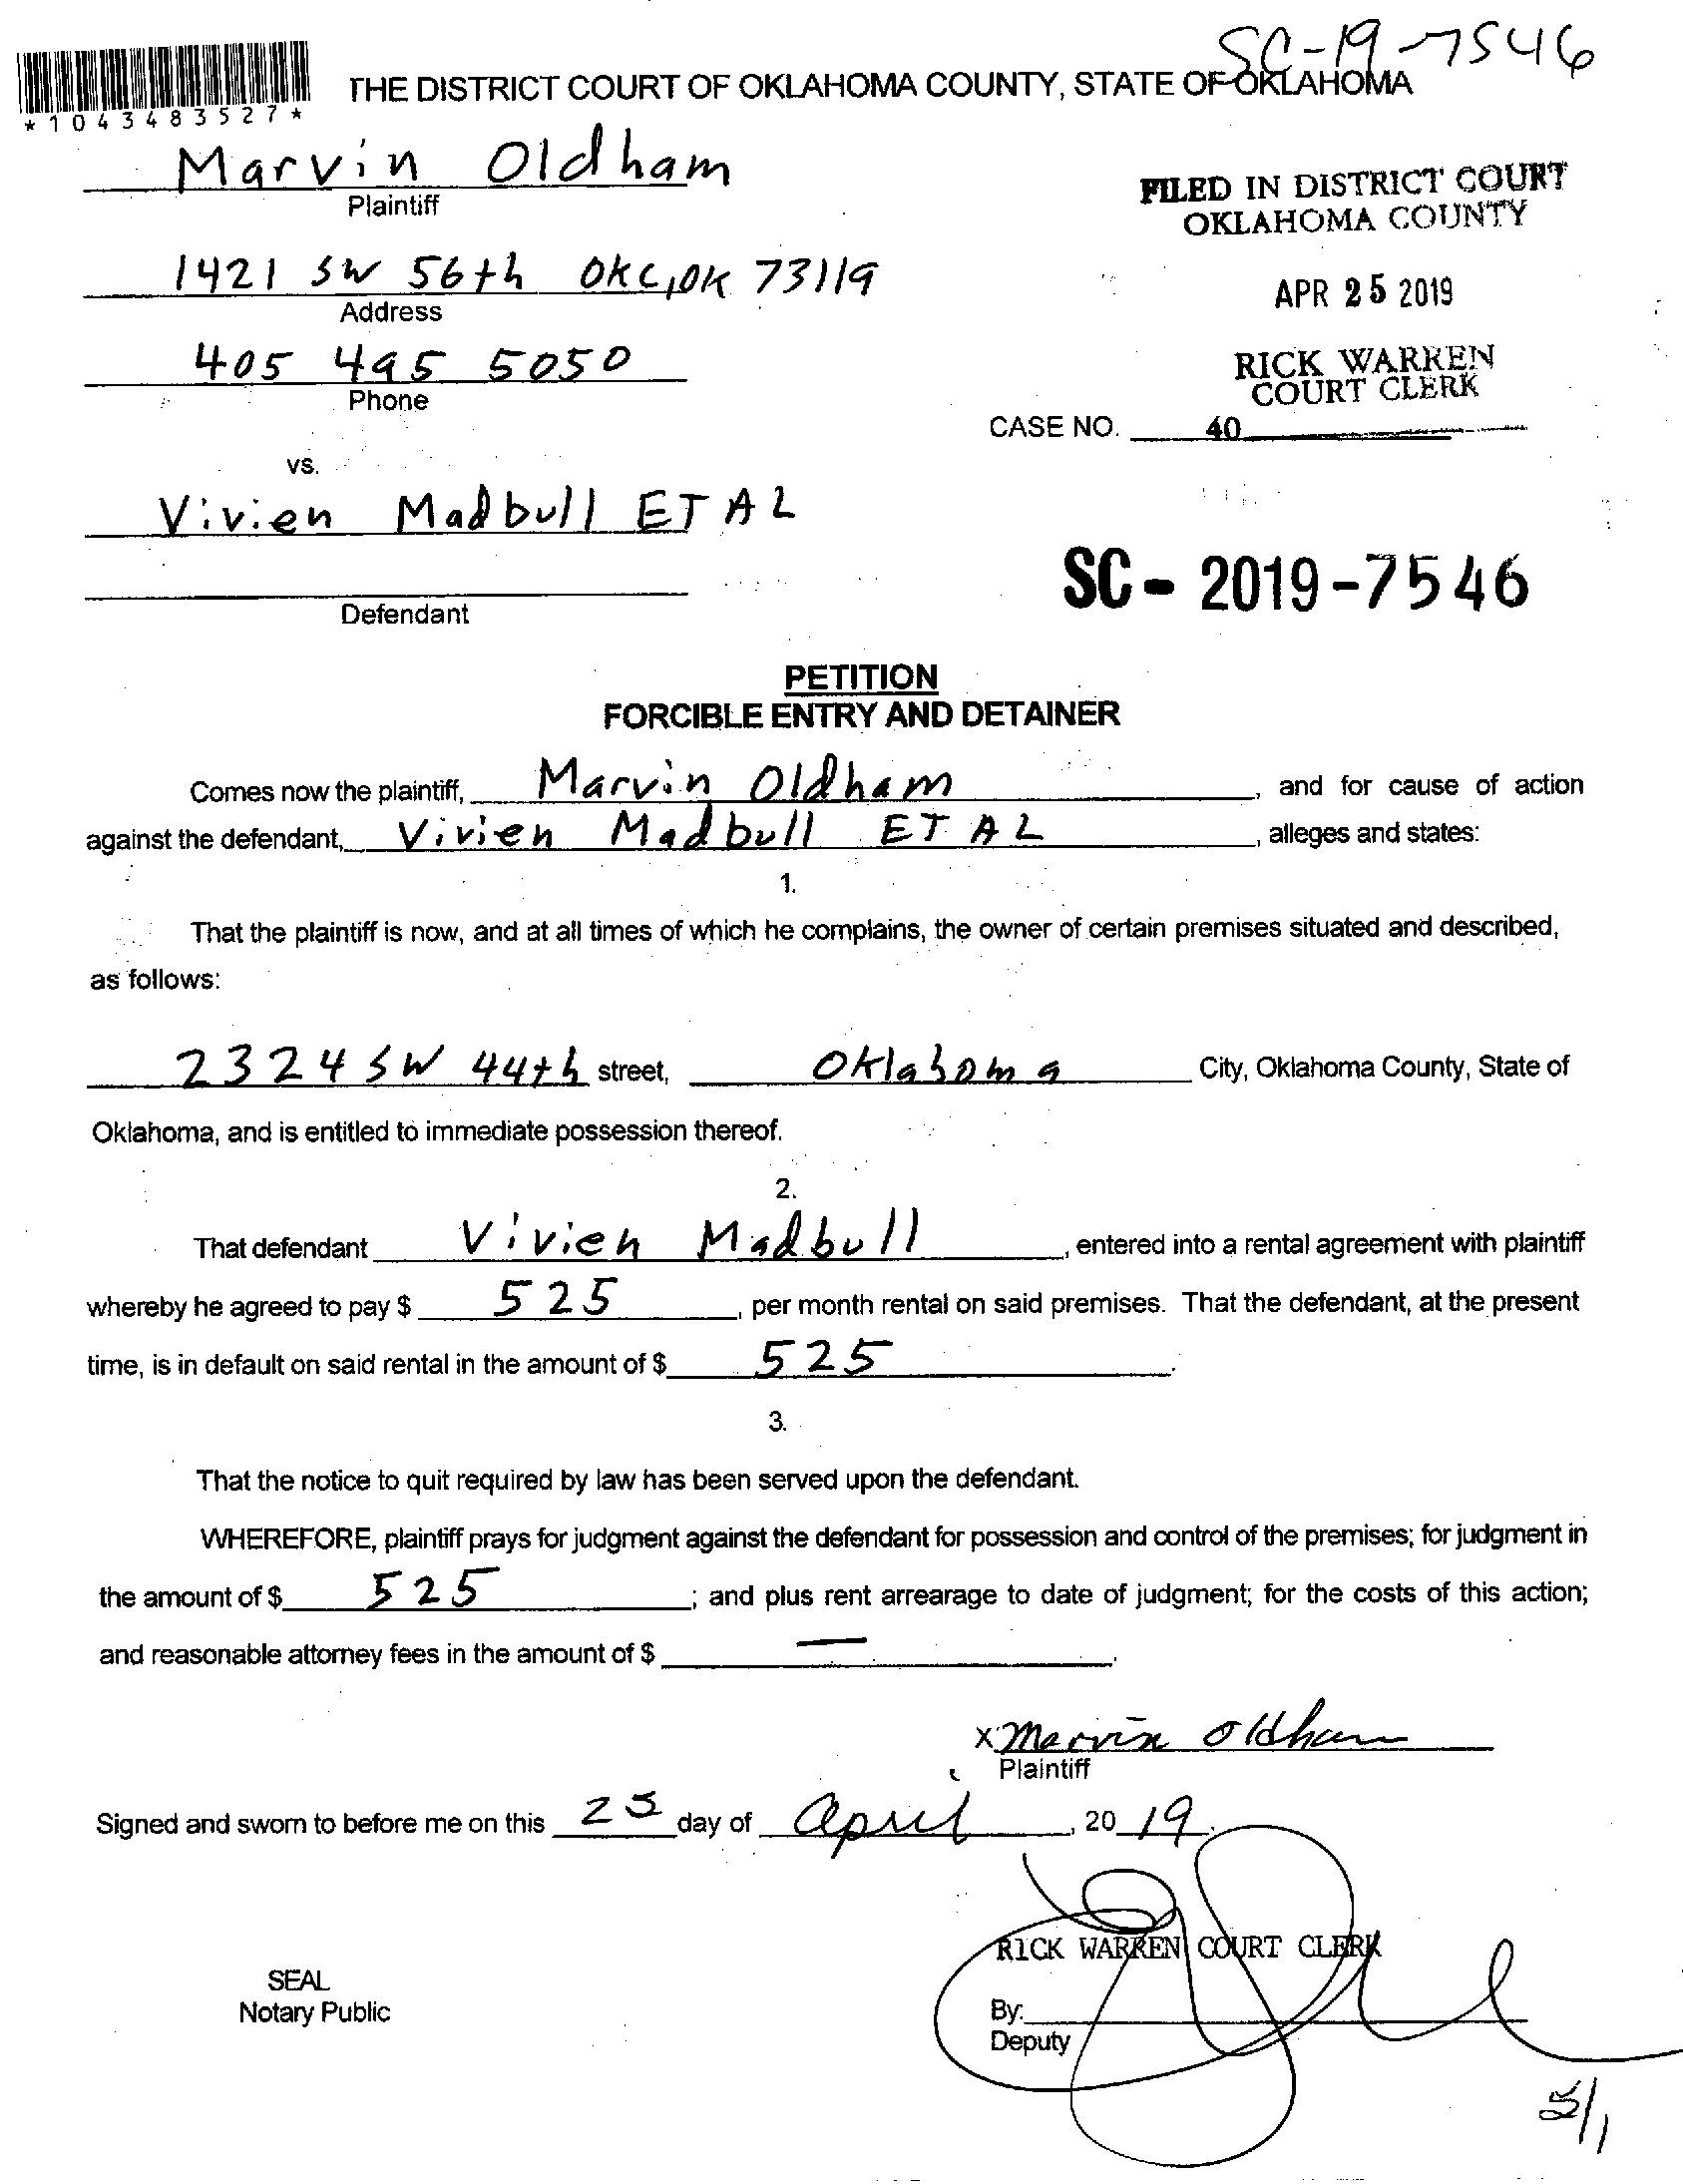 SC-19-7546
THE DISTRICT COURT OF OKLAHOMA COUNTY, STATE OF OKLAHOMA
*1043483527*
Marvin Oldham
Plaintiff
FILED IN DISTRICT COURT
OKLAHOMA COUNTY
1421 SW 56th OKC, OK 73119
Address
APR 25 2019
405 495 5050
Phone
RICK WARREN
COURT CLERK
CASE NO. 40
vs.
Vivien Madbull ET AL
Defendant
SC - 2019-7546
PETITION
FORCIBLE ENTRY AND DETAINER
Comes now the plaintiff, Marvin Oldham, and for cause of action
against the defendant, Vivien Madbull ET AL, alleges and states:
1.
That the plaintiff is now, and at all times of which he complains, the owner of certain premises situated and described,
as follows:
2324 SW 44th street, Oklahoma City, Oklahoma County, State of
Oklahoma, and is entitled to immediate possession thereof.
2.
That defendant Vivien Madbull, entered into a rental agreement with plaintiff
whereby he agreed to pay $ 525, per month rental on said premises. That the defendant, at the present
time, is in default on said rental in the amount of $ 525.
3.
That the notice to quit required by law has been served upon the defendant.
WHEREFORE, plaintiff prays for judgment against the defendant for possession and control of the premises; for judgment in
the amount of $ 525; and plus rent arrearage to date of judgment; for the costs of this action;
and reasonable attorney fees in the amount of $ —.
x Marvin Oldham
Plaintiff
Signed and sworn to before me on this 25 day of April, 2019.
RICK WARREN COURT CLERK
SEAL
Notary Public
By:
Deputy
5/1